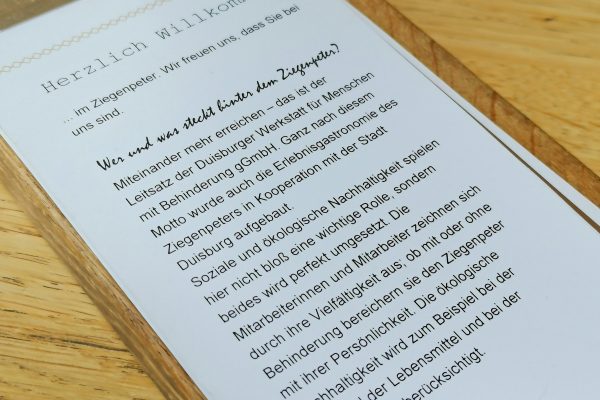 Herzlich Willkom
... im Ziegenpeter. Wir freuen uns, dass Sie bei
uns sind.
Wer und was steckt hinter dem Ziegenpeter?
Miteinander mehr erreichen – das ist der
Leitsatz der Duisburger Werkstatt für Menschen
mit Behinderung gGmbH. Ganz nach diesem
Motto wurde auch die Erlebnisgastronomie des
Ziegenpeters in Kooperation mit der Stadt
Duisburg aufgebaut.
Soziale und ökologische Nachhaltigkeit spielen
hier nicht bloß eine wichtige Rolle, sondern
beides wird perfekt umgesetzt. Die
Mitarbeiterinnen und Mitarbeiter zeichnen sich
durch ihre Vielfältigkeit aus; ob mit oder ohne
Behinderung bereichern sie den Ziegenpeter
mit ihrer Persönlichkeit. Die ökologische
achhaltigkeit wird zum Beispiel bei der
l der Lebensmittel und bei der
berücksichtigt.